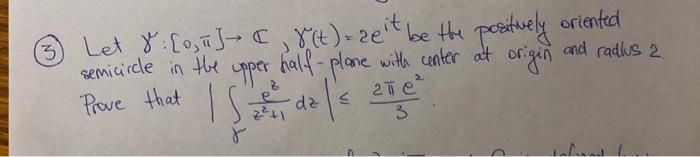 ③ Let γ:[0,π]→ ℂ, γ(t)=2e^{it} be the positively oriented
semicircle in the upper half-plane with center at origin and radius 2.
Prove that |∫_γ e^z/(z²+1) dz| ≤ 2πe²/3.